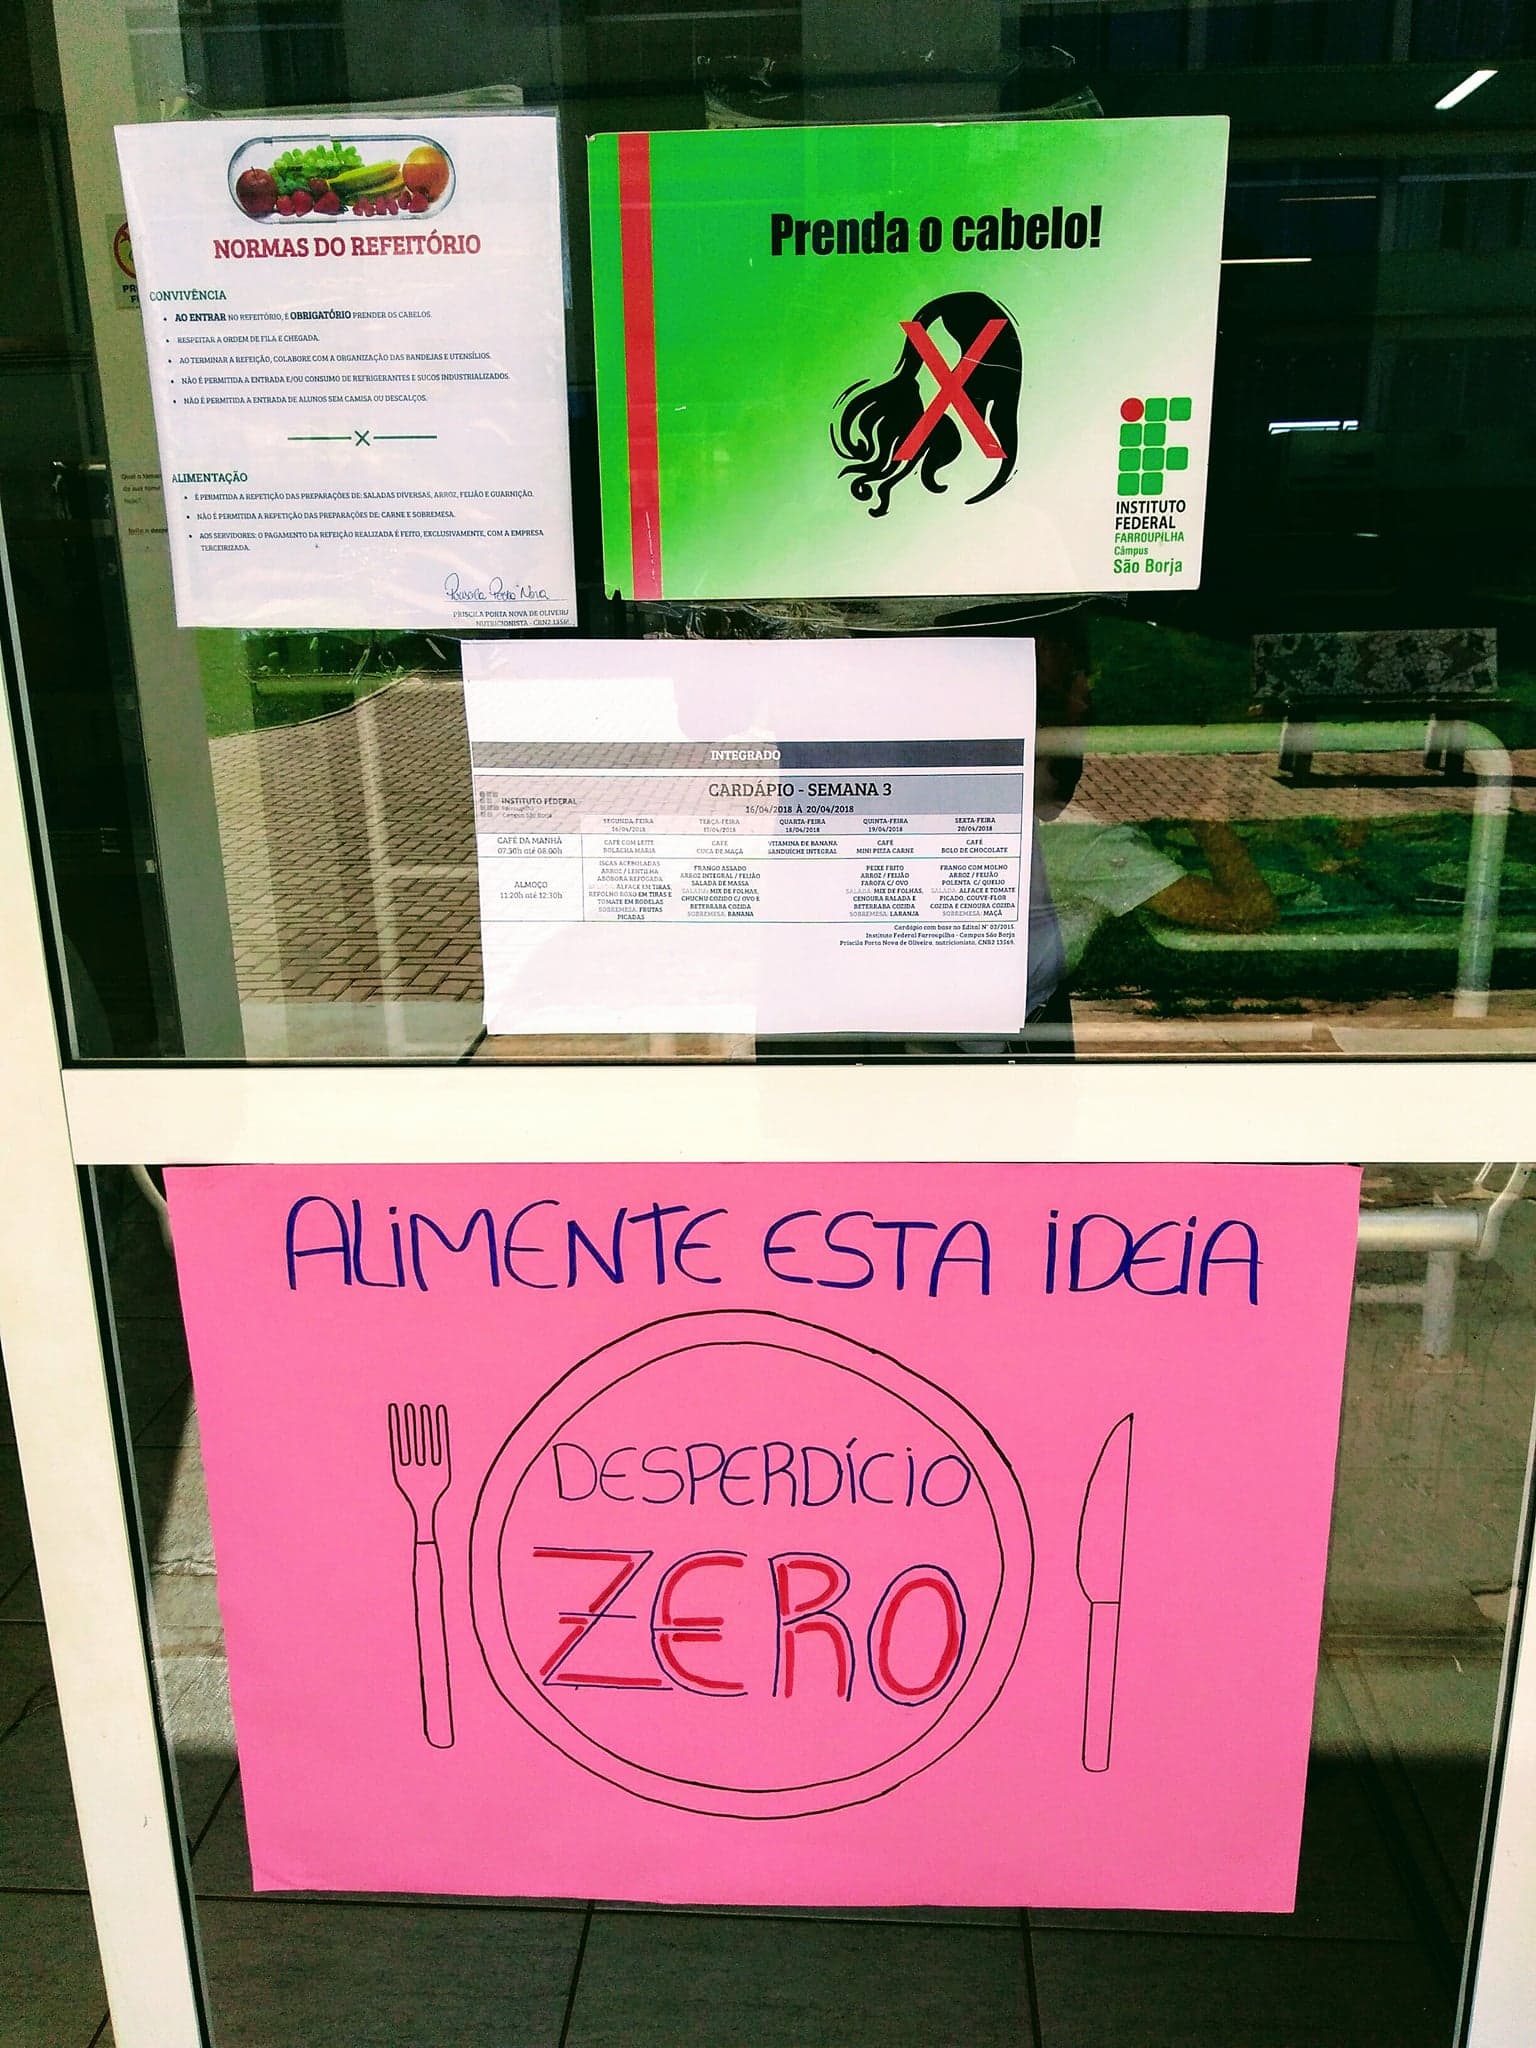 NORMAS DO REFEITÓRIO
CONVIVÊNCIA
• AO ENTRAR NO REFEITÓRIO, É OBRIGATÓRIO PRENDER OS CABELOS.
• RESPEITAR A ORDEM DE FILA E CHEGADA.
• AO TERMINAR A REFEIÇÃO, COLABORE COM A ORGANIZAÇÃO DAS BANDEJAS E UTENSÍLIOS.
• NÃO É PERMITIDA A ENTRADA E/OU CONSUMO DE REFRIGERANTES E SUCOS INDUSTRIALIZADOS.
• NÃO É PERMITIDA A ENTRADA DE ALUNOS SEM CAMISA OU DESCALÇOS.
ALIMENTAÇÃO
• É PERMITIDA A REPETIÇÃO DAS PREPARAÇÕES DE: SALADAS DIVERSAS, ARROZ, FEIJÃO E GUARNIÇÃO.
• NÃO É PERMITIDA A REPETIÇÃO DAS PREPARAÇÕES DE: CARNE E SOBREMESA.
• AOS SERVIDORES: O PAGAMENTO DA REFEIÇÃO REALIZADA É FEITO, EXCLUSIVAMENTE, COM A EMPRESA
TERCEIRIZADA.
Priscila Porta Nova
PRISCILA PORTA NOVA DE OLIVEIRA
NUTRICIONISTA - CRN2 13569
Prenda o cabelo!
INSTITUTO
FEDERAL
FARROUPILHA
Câmpus
São Borja
INTEGRADO
INSTITUTO FEDERAL
Farroupilha
Campus São Borja
CARDÁPIO - SEMANA 3
16/04/2018 À 20/04/2018
SEGUNDA-FEIRA TERÇA-FEIRA QUARTA-FEIRA QUINTA-FEIRA SEXTA-FEIRA
16/04/2018 17/04/2018 18/04/2018 19/04/2018 20/04/2018
CAFÉ DA MANHÃ
07:30h até 08:00h
CAFÉ COM LEITE
BOLACHA MARIA
CAFÉ
CUCA DE MAÇÃ
VITAMINA DE BANANA
SANDUÍCHE INTEGRAL
CAFÉ
MINI PIZZA CARNE
CAFÉ
BOLO DE CHOCOLATE
ALMOÇO
11:20h até 12:30h
ISCAS ACEBOLADAS
ARROZ / LENTILHA
ABÓBORA REFOGADA
SALADA: ALFACE EM TIRAS,
REPOLHO ROXO EM TIRAS E
TOMATE EM RODELAS
SOBREMESA: FRUTAS
PICADAS
FRANGO ASSADO
ARROZ INTEGRAL / FEIJÃO
SALADA DE MASSA
SALADA: MIX DE FOLHAS,
CHUCHU COZIDO C/ OVO E
BETERRABA COZIDA
SOBREMESA: BANANA
PEIXE FRITO
ARROZ / FEIJÃO
FAROFA C/ OVO
SALADA: MIX DE FOLHAS,
CENOURA RALADA E
BETERRABA COZIDA
SOBREMESA: LARANJA
FRANGO COM MOLHO
ARROZ / FEIJÃO
POLENTA C/ QUEIJO
SALADA: ALFACE E TOMATE
PICADO, COUVE-FLOR
COZIDA E CENOURA COZIDA
SOBREMESA: MAÇÃ
Cardápio com base no Edital N° 03/2015.
Instituto Federal Farroupilha - Campus São Borja
Priscila Porta Nova de Oliveira, nutricionista, CNR2 13569.
ALIMENTE ESTA IDEIA
DESPERDÍCIO
ZERO